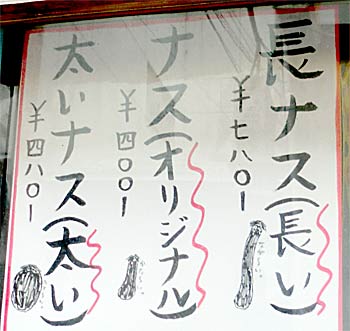 長ナス(長い)
¥七八〇ー
ナス(オリジナル)
¥四〇〇ー
太いナス(太い)
¥四八〇ー